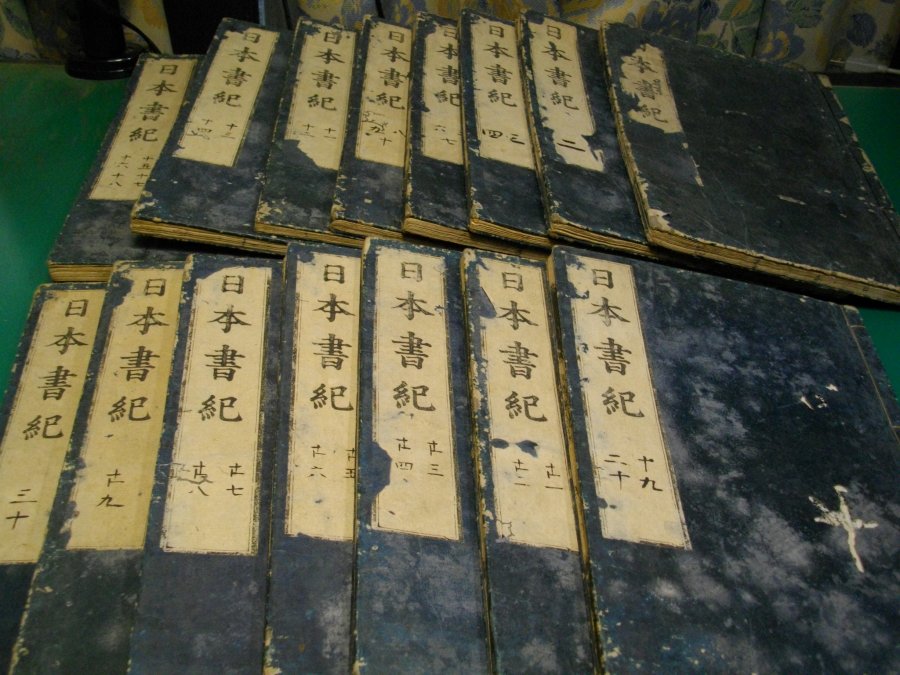 本書紀
日本書紀
二
日本書紀
三
四
日本書紀
六七
日本書紀
八
九十
日本書紀
十一
十二
日本書紀
十三
十四
日本書紀
十五十七
十六十八
日本書紀
十九
二十
日本書紀
廿一
廿二
日本書紀
廿三
廿四
日本書紀
廿五
廿六
日本書紀
廿七
廿八
日本書紀
廿九
日本書紀
三十